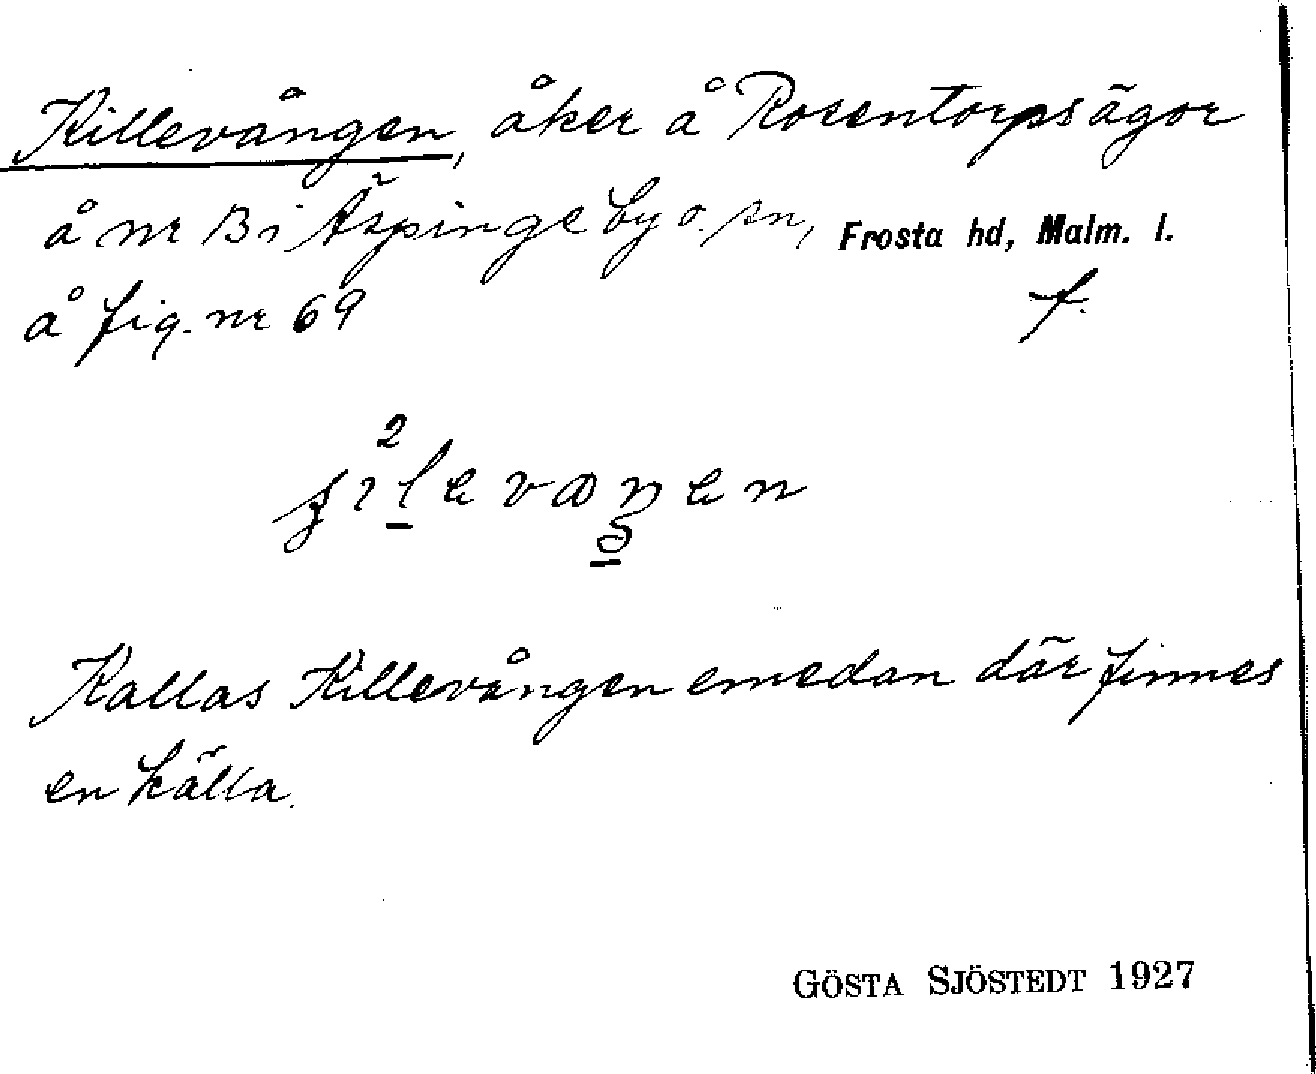 Killevången, åker å Rosentorps ägor
å nr 13 i Äspinge by o. sn, Frosta hd, Malm. l.
å fig. nr 69 f.
Kallas Killevången emedan där finnes
en källa.
GÖSTA SJÖSTEDT 1927